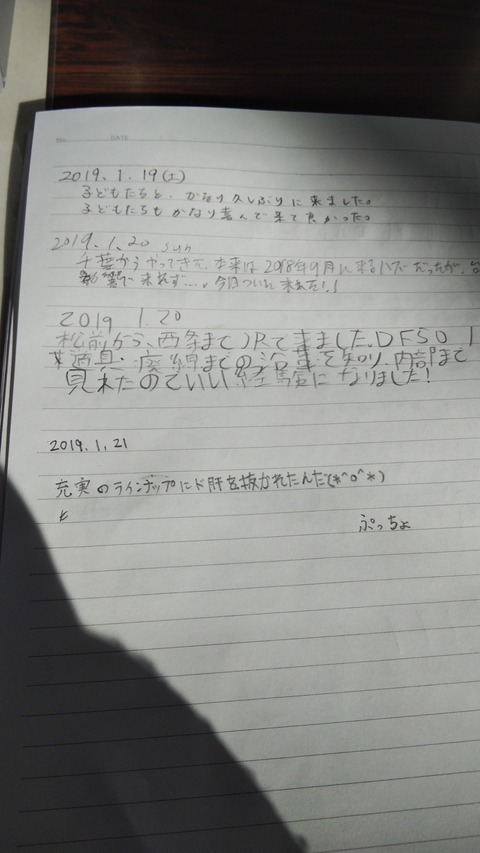 DATE
2019.1.19(土)
子どもたちと、かなり久しぶりに来ました。
子どもたちもかなり喜んで来て良かった。
2019.1.20 sun
千葉からやってきた。本来は2018年9月に来るハズだったが、台
影響で来れず…。今日ついに来れた!!
2019 1.20
松前から、西条までJRで来ました。DF50 1
開通・廃線までの沿革を知り、内部まで
見れたのでいい経験になりました!
2019.1.21
充実のラインナップにド肝を抜かれたんだ(*^o^*)
ぷっちょ